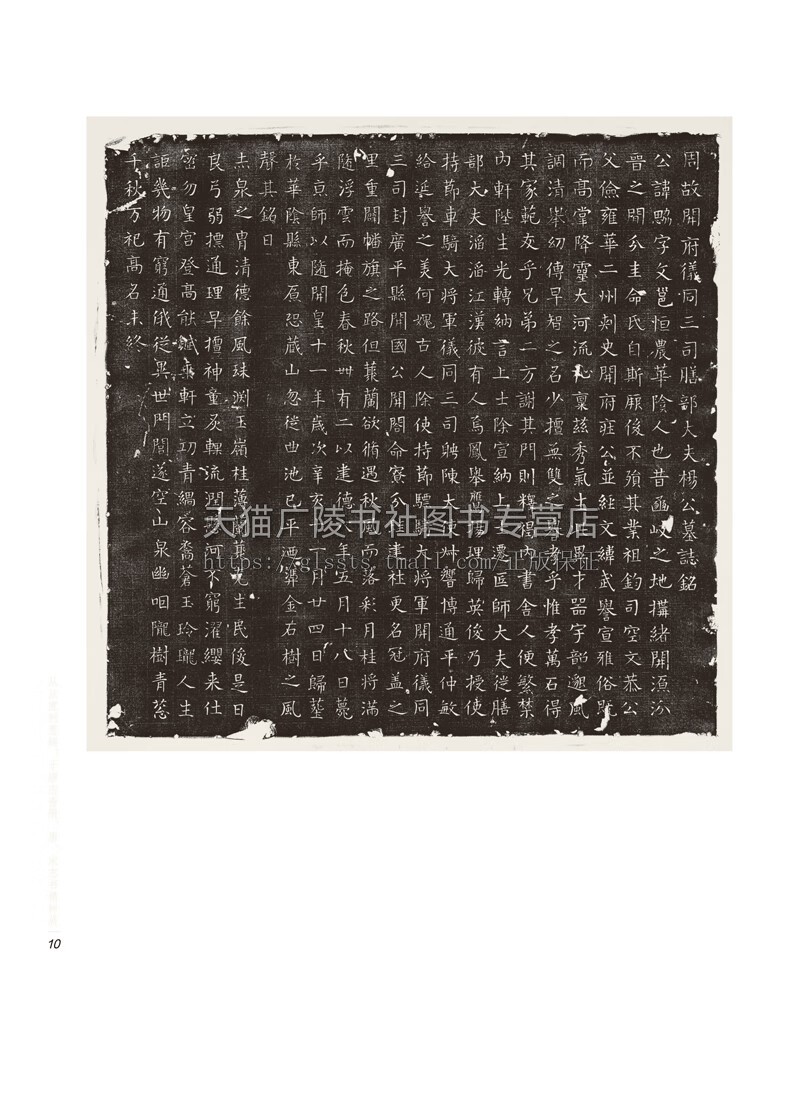 周故開府儀同三司膳部大夫楊公墓誌銘
公諱 字文邕恒農華陰人也昔 岐之地構緒開源汾
晉之開分圭命氏自斯厥後不殞其業祖鈞司空文恭公
父儉雍華二州刺史開府莊公並経文緯武譽宣雅俗既
而高堂降靈大河流 稟茲秀氣 才器宇韶 風
調清舉幼傳早智之名少擅無雙之 孝乎惟孝萬石得
其家範友乎兄弟二方謝其門則釋褐內書舍人便繁禁
內軒陛生光轉納言上士除宣納上士遷匠師大夫従膳
部大夫滔滔江漢彼有人焉鳳舉 理歸英俊乃授使
持節車騎大將軍儀同三司聘陳大 叔譽博通平仲敏
給延譽之美何媿古人除使持節驃騎大將軍開府儀同
三司封廣平縣開國公開閤命寮分 建社更名冠蓋之
里重闢幡旗之路但蘐蘭欲脩遇秋風而落彩月桂將滿
隨浮雲而掩色春秋卌有二以建德六年五月十八日薨
乎京師以隨開皇十一年歲次辛亥 月廿四日歸葬
於華陰縣東原恐蔵山忽従曲池已平 金石樹之風
聲其銘曰
赤泉之胄清德餘風珠淵玉嶺桂薄蘭叢 生民俊是曰
良弓弱摽通理早擅神童炙輠流潤 河不窮濯纓来仕
密勿皇宮登高能賦乘軒立功青緺容裔蒼玉玲瓏人生
詎幾物有窮通俄従異世門閭遂空山泉幽咽隴樹青蔥
千秋万祀高名未終
天猫广陵书社图书专营店
https://glssts.tmall.com/正版保证
10